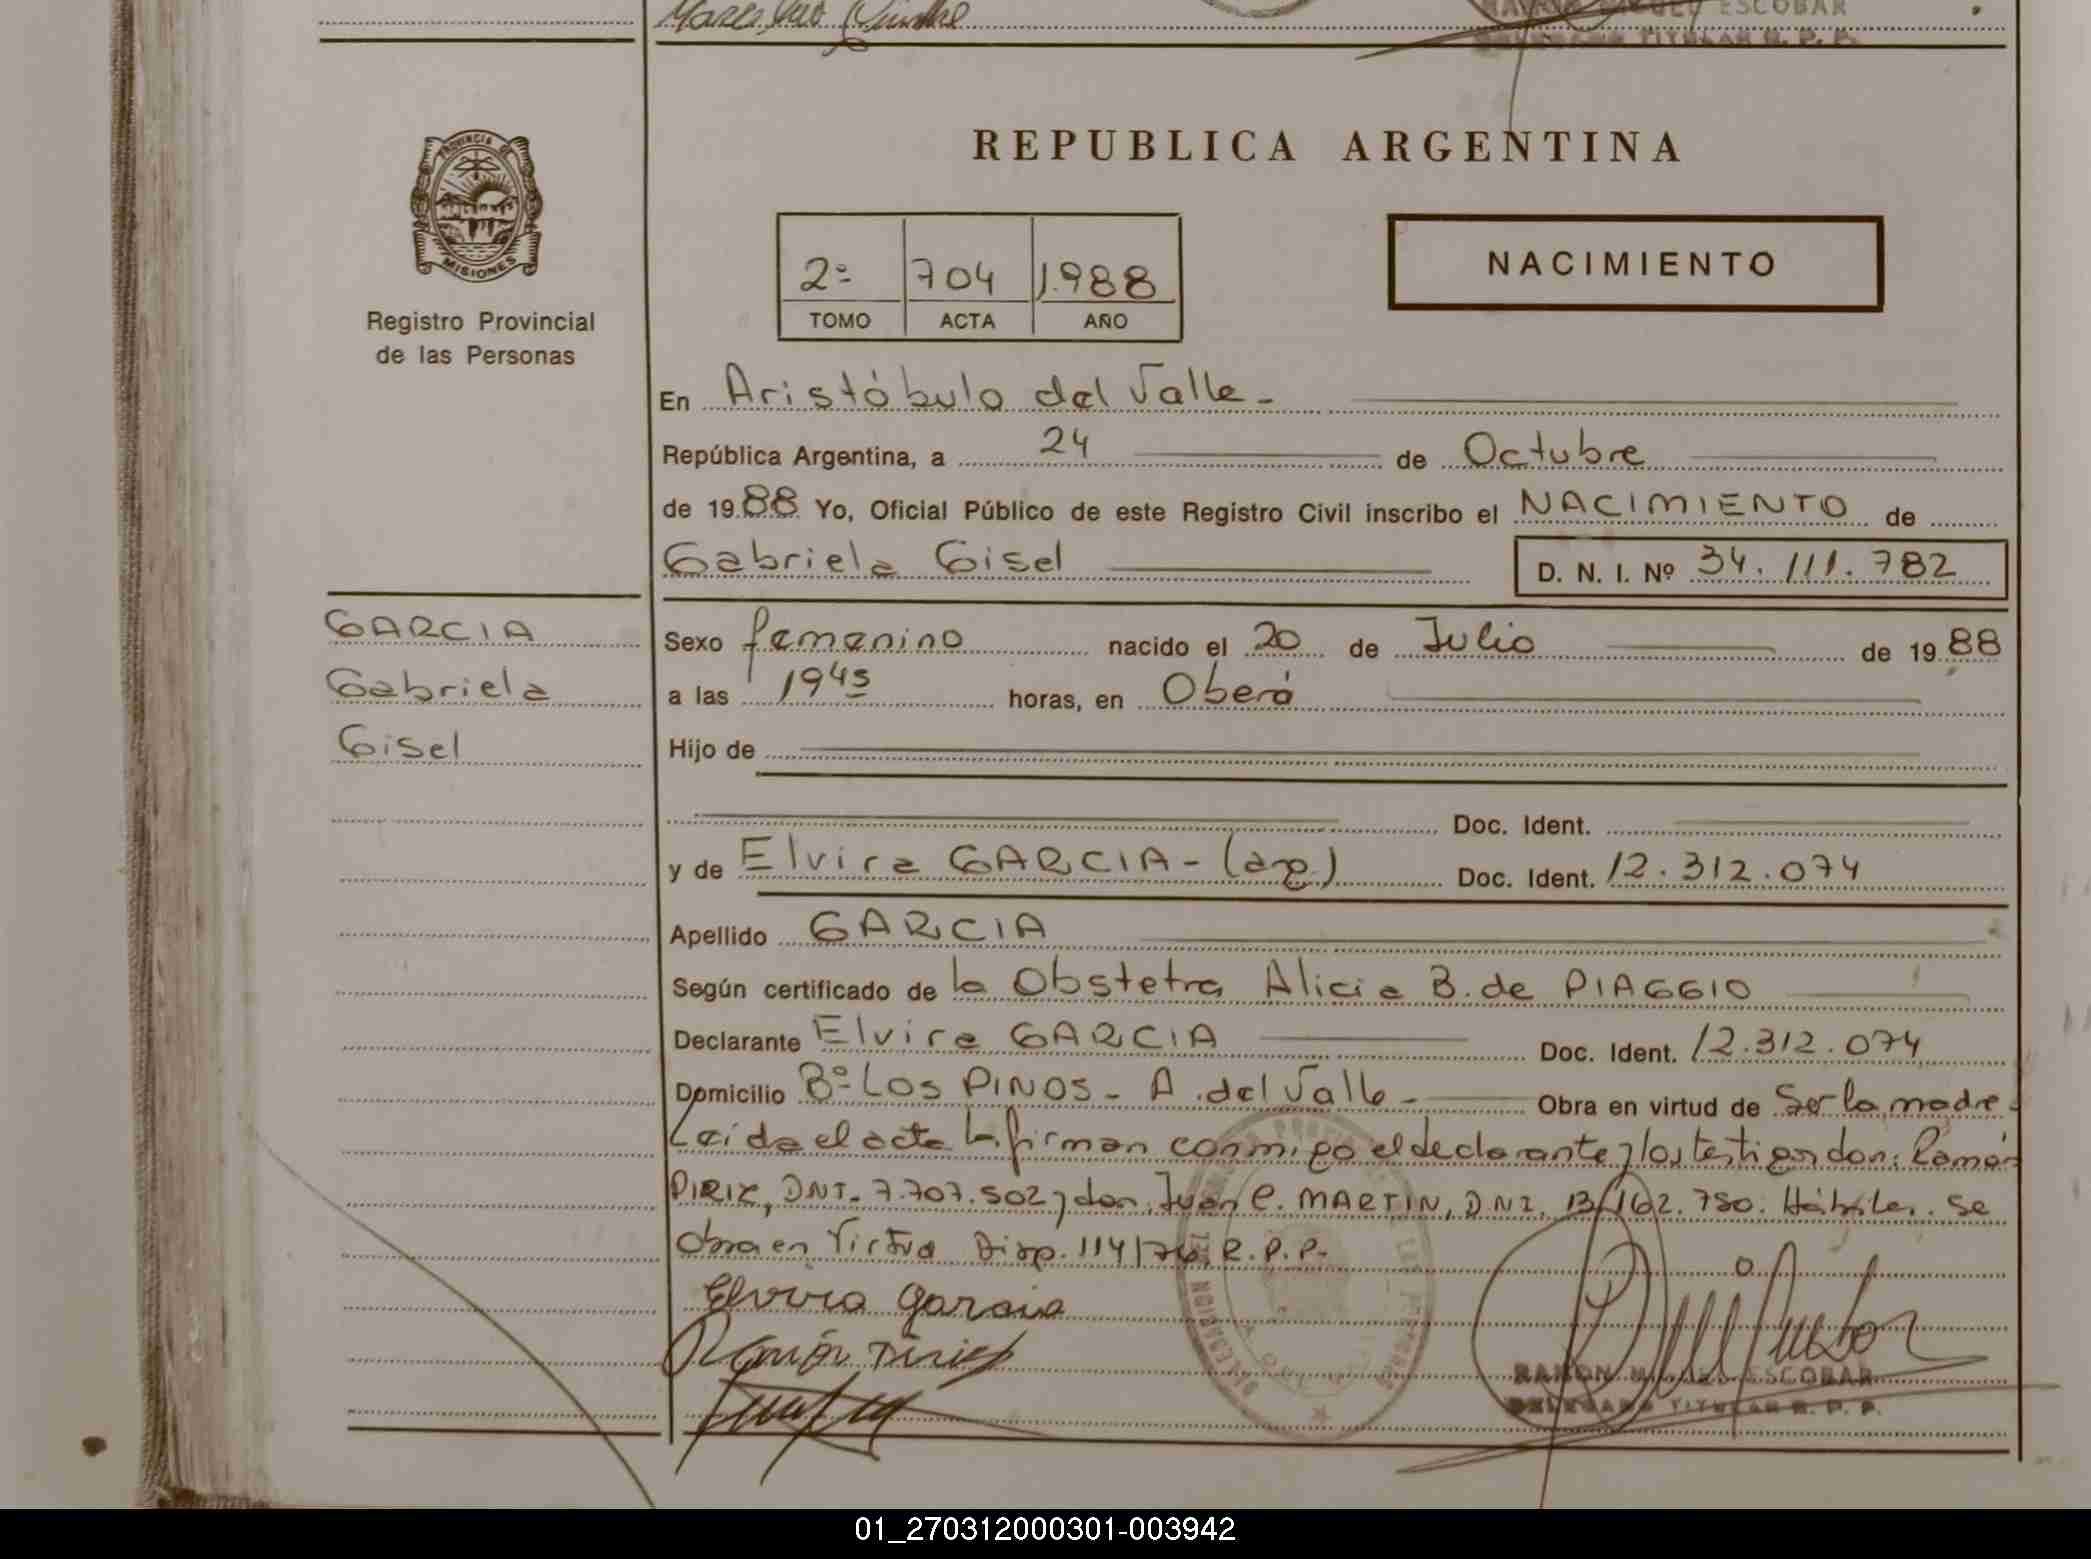 ESCOBAR
DELEGADO TITULAR R. P. P.
PROVINCIA DE
MISIONES
Registro Provincial
de las Personas
REPUBLICA ARGENTINA
2º 704 1.988
TOMO ACTA AÑO
NACIMIENTO
En Aristóbulo del Valle -
República Argentina, a 24 de Octubre
de 19 88 Yo, Oficial Público de este Registro Civil inscribo el NACIMIENTO de
Gabriela Gisel D. N. I. Nº 34.111.782
GARCIA
Gabriela
Gisel
Sexo femenino nacido el 20 de Julio de 19 88
a las 1945 horas, en Oberá
Hijo de
Doc. Ident.
y de Elvira GARCIA - (arg) Doc. Ident. 12.312.074
Apellido GARCIA
Según certificado de la Obstetra Alicia B. de PIAGGIO
Declarante Elvira GARCIA Doc. Ident. 12.312.074
Domicilio Bº LOS PINOS - A. del Valle - Obra en virtud de Ser la madre -
Leida el acta la firman conmigo el declarante y los testigos don: Ramón
PIRIZ, DNI. 7.707.502 y don. Juan C. MARTIN, DNI. 13.162.750. Hábiles. se
obra en Virtud Disp. 114/76. R.P.P.
Elvira Garcia
Ramón Piriz
RAMON MIGUEL ESCOBAR
DELEGADO TITULAR R. P. P.
01_270312000301-003942